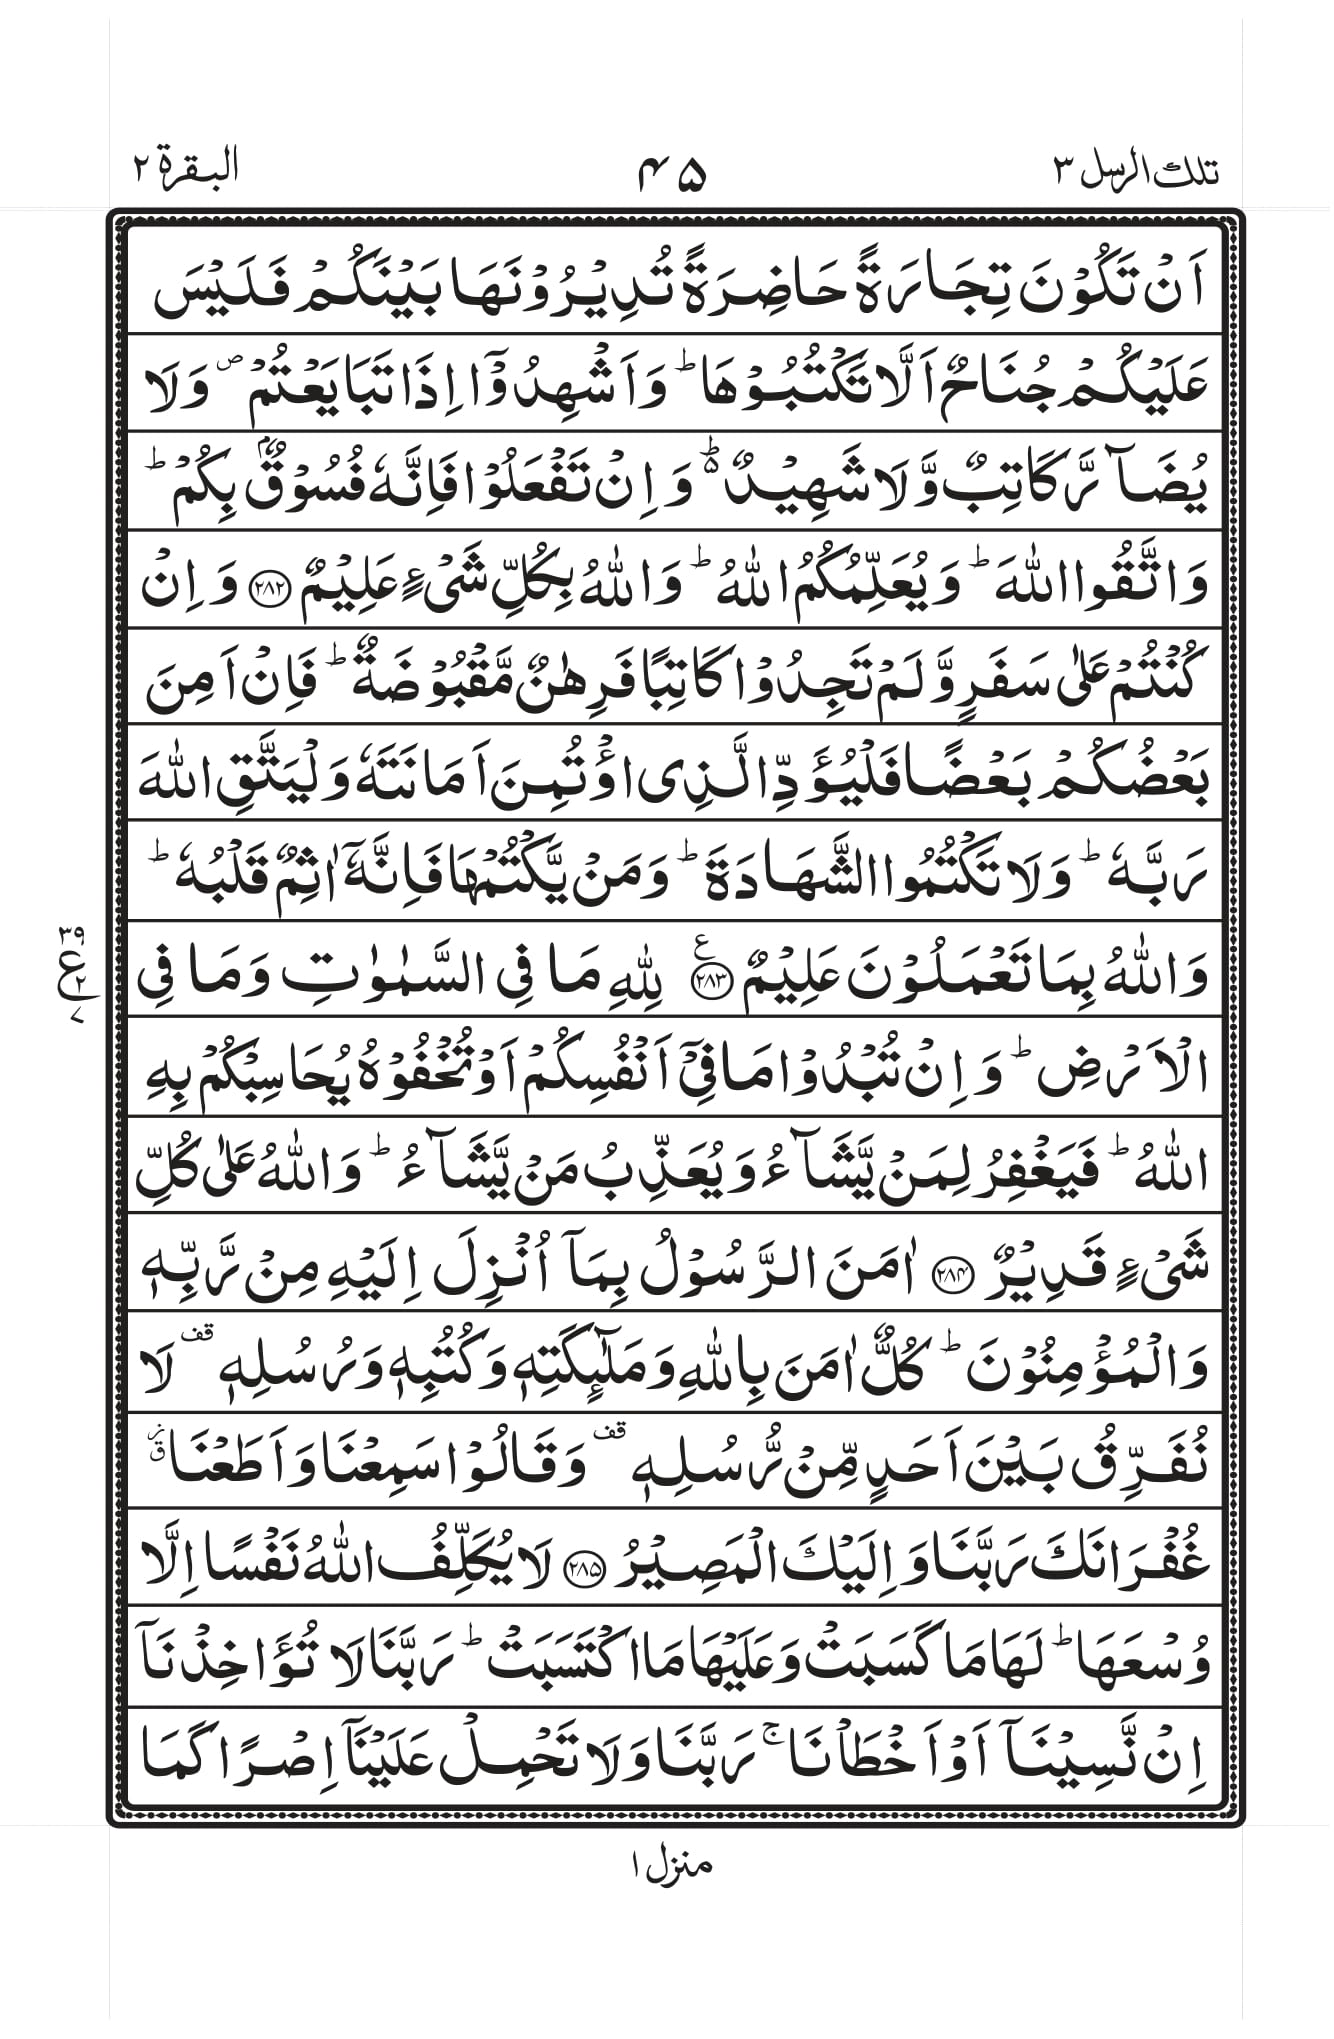 تلك الرسل ٣
۴۵
البقرة ٢
اَنْ تَكُوْنَ تِجَارَةً حَاضِرَةً تُدِيْرُوْنَهَا بَيْنَكُمْ فَلَيْسَ
عَلَيْكُمْ جُنَاحٌ اَلَّا تَكْتُبُوْهَا ؕ وَاَشْهِدُوْۤا اِذَا تَبَايَعْتُمْ ۪ وَلَا
يُضَآرَّ كَاتِبٌ وَّلَا شَهِيْدٌ ؕ۬ وَاِنْ تَفْعَلُوْا فَاِنَّهٗ فُسُوْقٌۢ بِكُمْ ؕ
وَاتَّقُوا اللّٰهَ ؕ وَيُعَلِّمُكُمُ اللّٰهُ ؕ وَاللّٰهُ بِكُلِّ شَىْءٍ عَلِيْمٌ ﴿۲۸۲﴾ وَاِنْ
كُنْتُمْ عَلٰى سَفَرٍ وَّلَمْ تَجِدُوْا كَاتِبًا فَرِهٰنٌ مَّقْبُوْضَةٌ ؕ فَاِنْ اَمِنَ
بَعْضُكُمْ بَعْضًا فَلْيُؤَدِّ الَّذِى اؤْتُمِنَ اَمَانَتَهٗ وَلْيَتَّقِ اللّٰهَ
رَبَّهٗ ؕ وَلَا تَكْتُمُوا الشَّهَادَةَ ؕ وَمَنْ يَّكْتُمْهَا فَاِنَّهٗۤ اٰثِمٌ قَلْبُهٗ ؕ
وَاللّٰهُ بِمَا تَعْمَلُوْنَ عَلِيْمٌ ﴿۲۸۳﴾ ع لِلّٰهِ مَا فِى السَّمٰوٰتِ وَمَا فِى
۳۹
ع
۲
۷
الْاَرْضِ ؕ وَاِنْ تُبْدُوْا مَا فِىْۤ اَنْفُسِكُمْ اَوْ تُخْفُوْهُ يُحَاسِبْكُمْ بِهِ
اللّٰهُ ؕ فَيَغْفِرُ لِمَنْ يَّشَآءُ وَيُعَذِّبُ مَنْ يَّشَآءُ ؕ وَاللّٰهُ عَلٰى كُلِّ
شَىْءٍ قَدِيْرٌ ﴿۲۸۴﴾ اٰمَنَ الرَّسُوْلُ بِمَاۤ اُنْزِلَ اِلَيْهِ مِنْ رَّبِّهٖ
وَالْمُؤْمِنُوْنَ ؕ كُلٌّ اٰمَنَ بِاللّٰهِ وَمَلٰٓئِكَتِهٖ وَكُتُبِهٖ وَرُسُلِهٖ قف لَا
نُفَرِّقُ بَيْنَ اَحَدٍ مِّنْ رُّسُلِهٖ قف وَقَالُوْا سَمِعْنَا وَاَطَعْنَا ز ق
غُفْرَانَكَ رَبَّنَا وَاِلَيْكَ الْمَصِيْرُ ﴿۲۸۵﴾ لَا يُكَلِّفُ اللّٰهُ نَفْسًا اِلَّا
وُسْعَهَا ؕ لَهَا مَا كَسَبَتْ وَعَلَيْهَا مَا اكْتَسَبَتْ ؕ رَبَّنَا لَا تُؤَاخِذْنَاۤ
اِنْ نَّسِيْنَاۤ اَوْ اَخْطَاْنَا ۚ رَبَّنَا وَلَا تَحْمِلْ عَلَيْنَاۤ اِصْرًا كَمَا
منزل ١